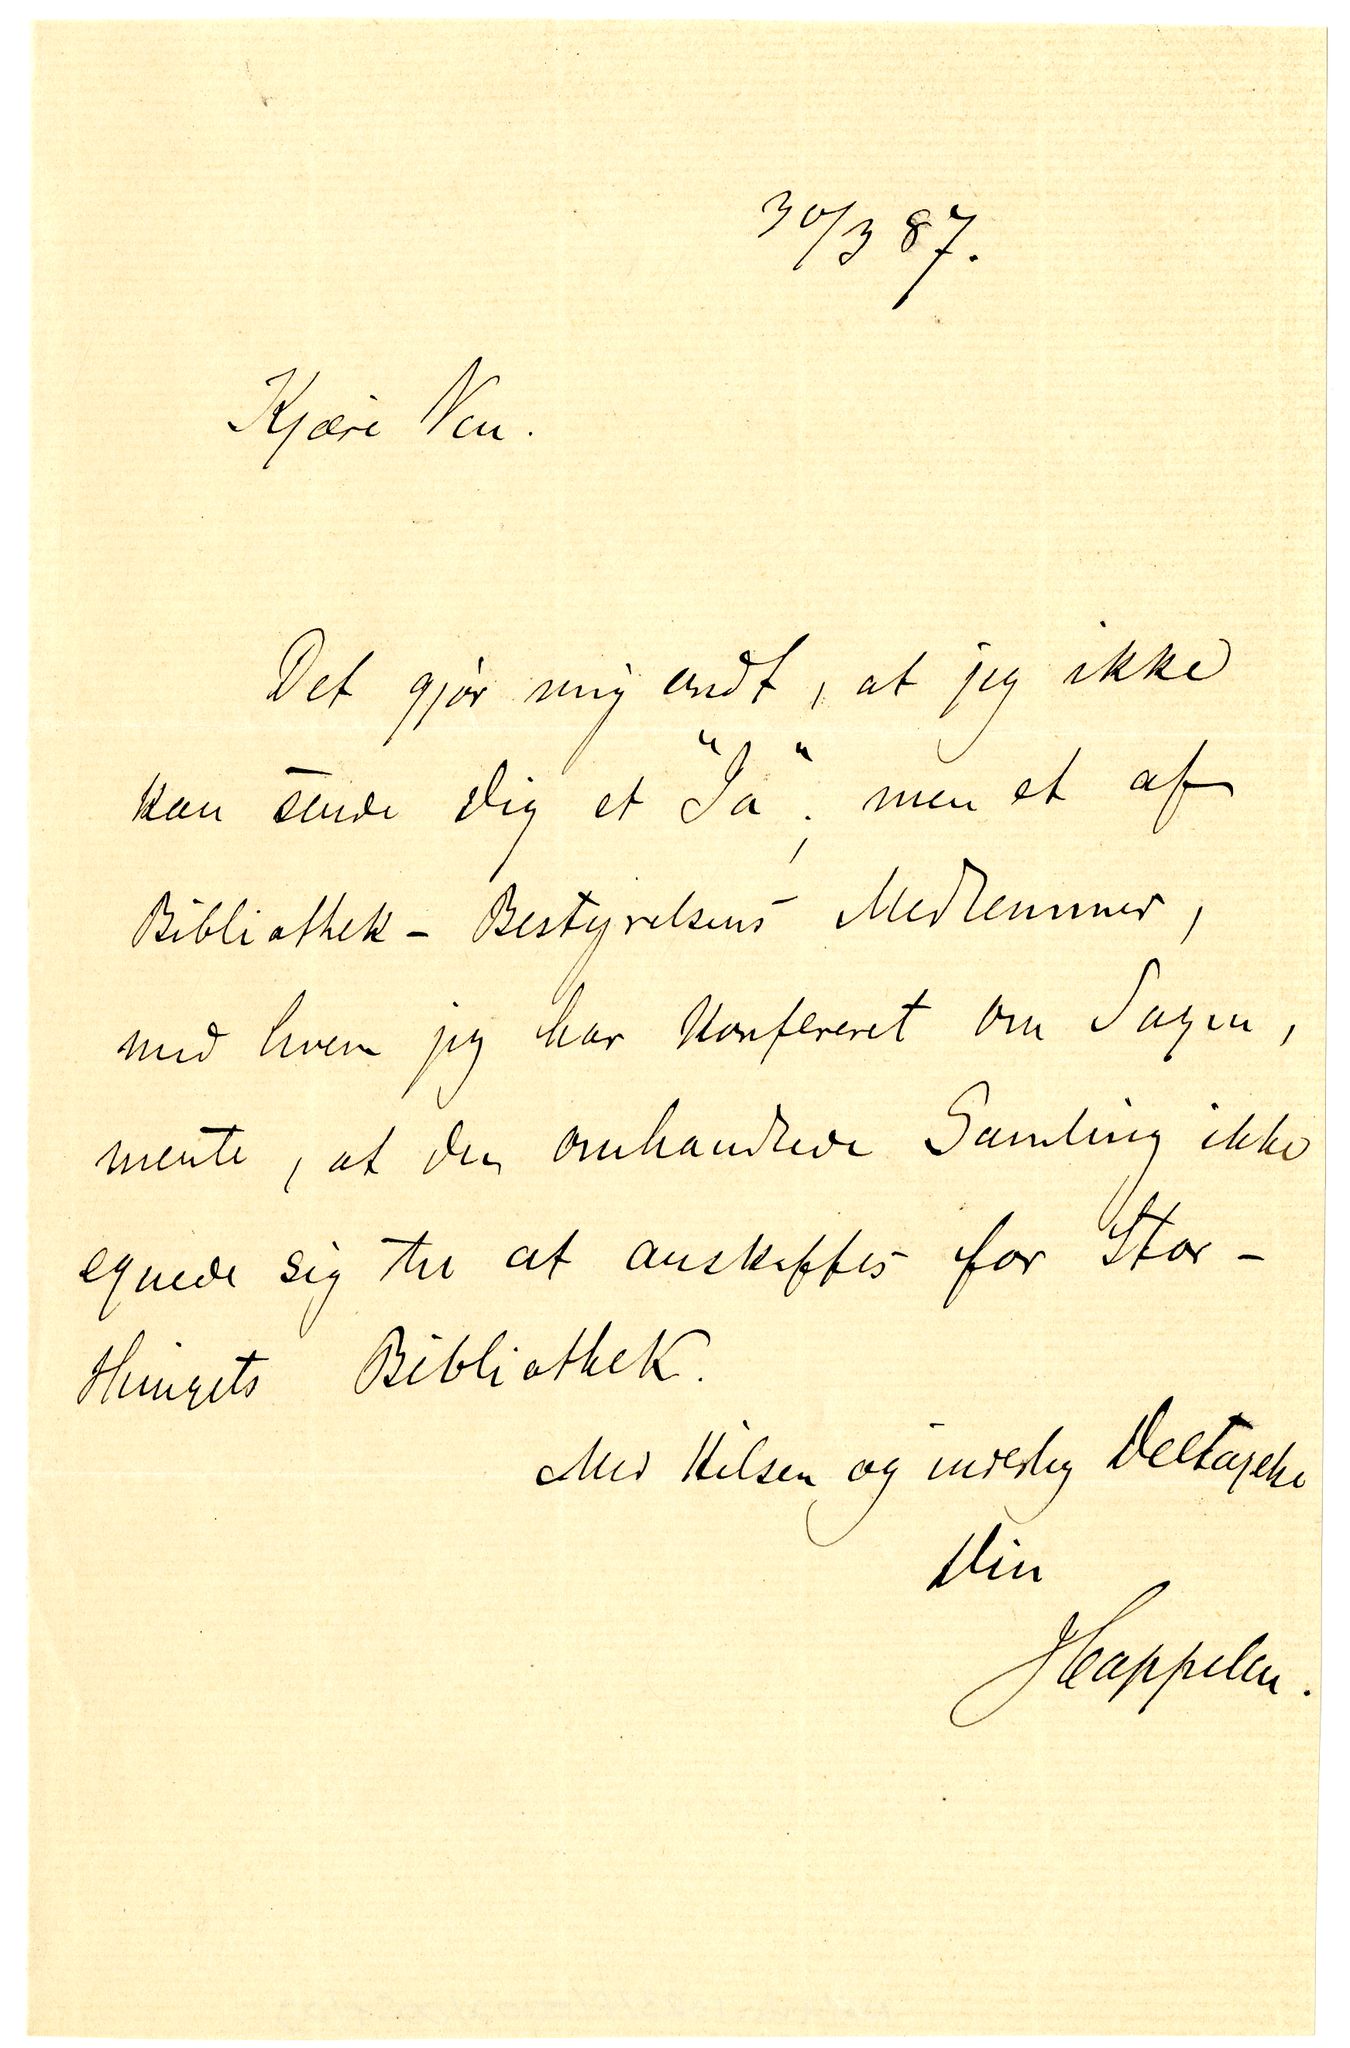 30/3 87.
Kjære Ven.
Det gjør mig ondt, at jeg ikke
kan sende Dig et "Ja"; men et af
Bibliothek-Bestyrelsens Medlemmer,
med hvem jeg har konfereret om Sagen,
mente, at den omhandlede Samling ikke
egnede sig til at anskaffes for Stor-
thingets Bibliothek.
Med Hilsen og inderlig Deltagelse
Din
JCappelen.